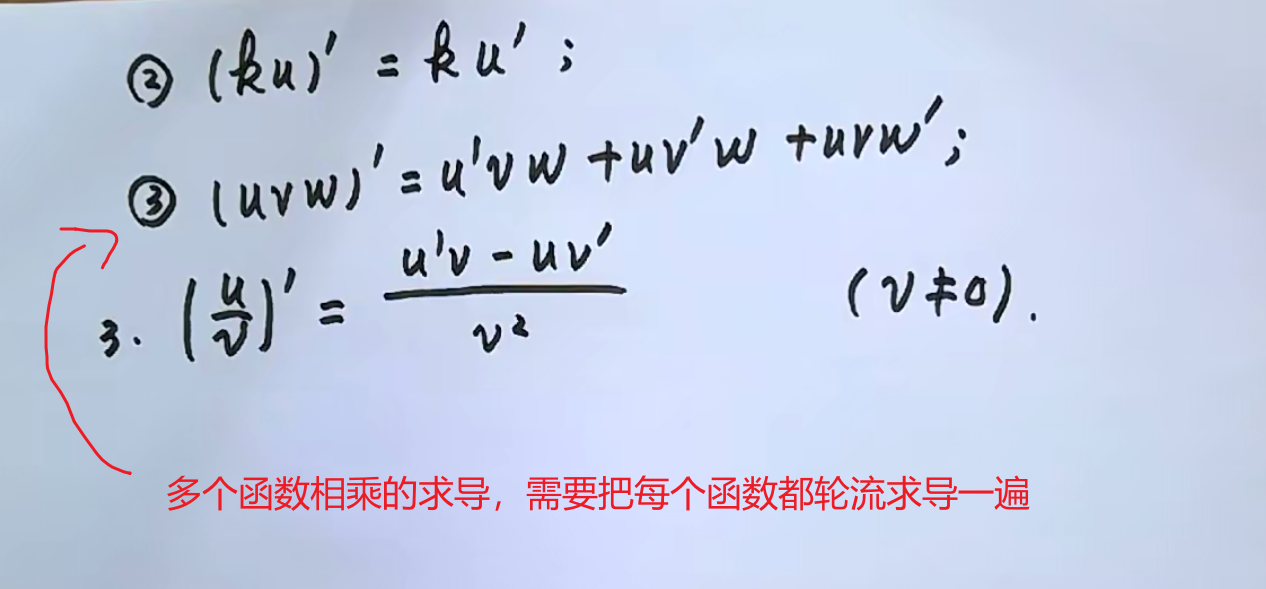 ② (ku)' = ku' ;
③ (uvw)' = u'vw + uv'w + uvw' ;
3. (u/v)' = (u'v - uv')/v² (v≠0).
多个函数相乘的求导，需要把每个函数都轮流求导一遍